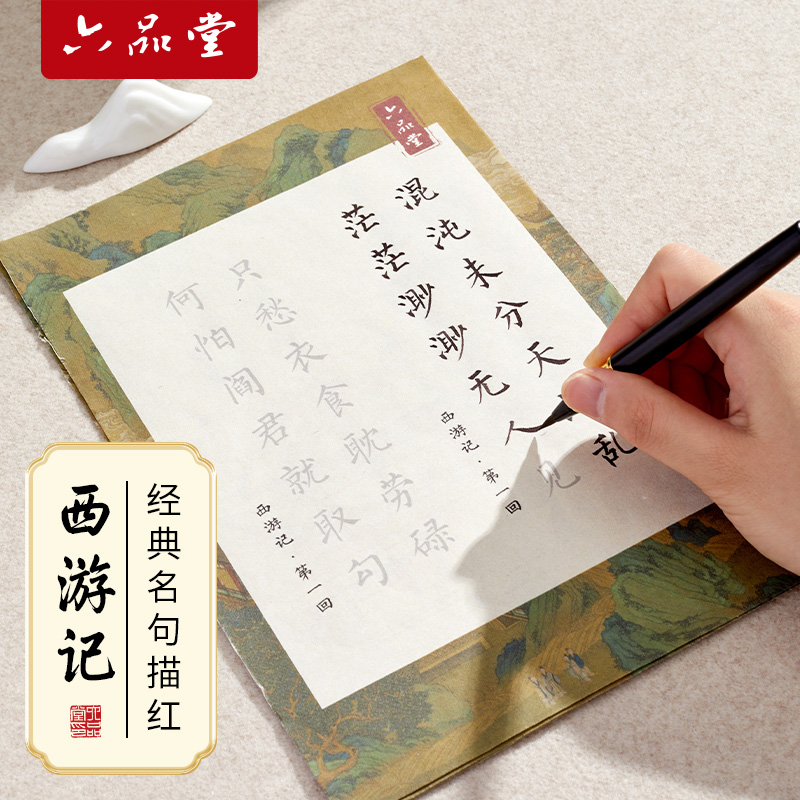 六品堂
六品堂
混沌未分天乱
茫茫渺渺无人见
西游记·第一回
只愁衣食耽劳碌
何怕阎君就取勾
西游记·第一回
经典名句描红
西游记
六品堂印